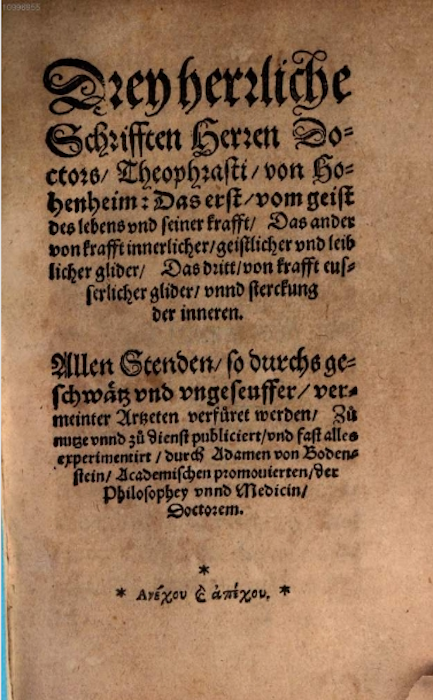 10996855
Drey herrliche
Schrifften Herren Do-
ctors/ Theophrasti/ von Ho-
henheim: Das erst/ vom geist
des lebens vnd seiner krafft/ Das ander
von krafft innerlicher/ geistlicher vnd leib
licher glider/ Das dritt/ von krafft eus-
serlicher glider/ vnnd sterckung
der inneren.
Allen Stenden/ so durchs ge-
schwätz vnd vngeseuffer/ ver-
meinter Artzeten verfüret werden/ Zů
nutze vnnd zů dienst publiciert/ vnd fast alles
experimentirt/ durch Adamen von Boden-
stein/ Academischen promouierten/ der
Philosophey vnnd Medicin/
Doctorem.
*
* Ανέχου ϗ ἀπέχου. *